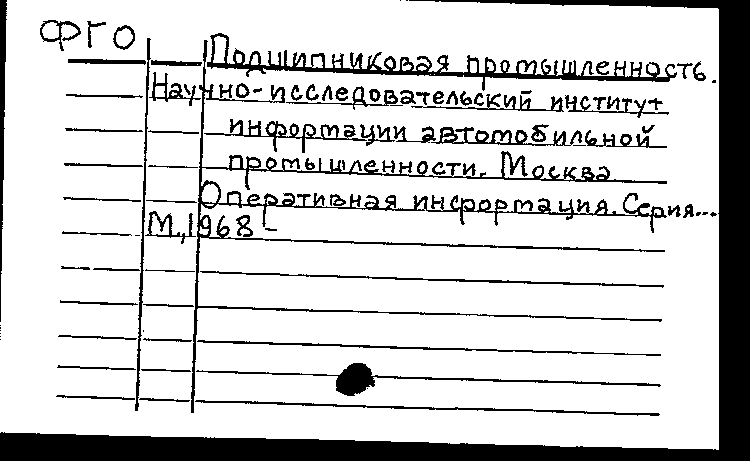 ФГО
Подшипниковая промышленность.
Научно-исследовательский институт
информации автомобильной
промышленности. Москва
Оперативная информация. Серия...
М., 1968 -